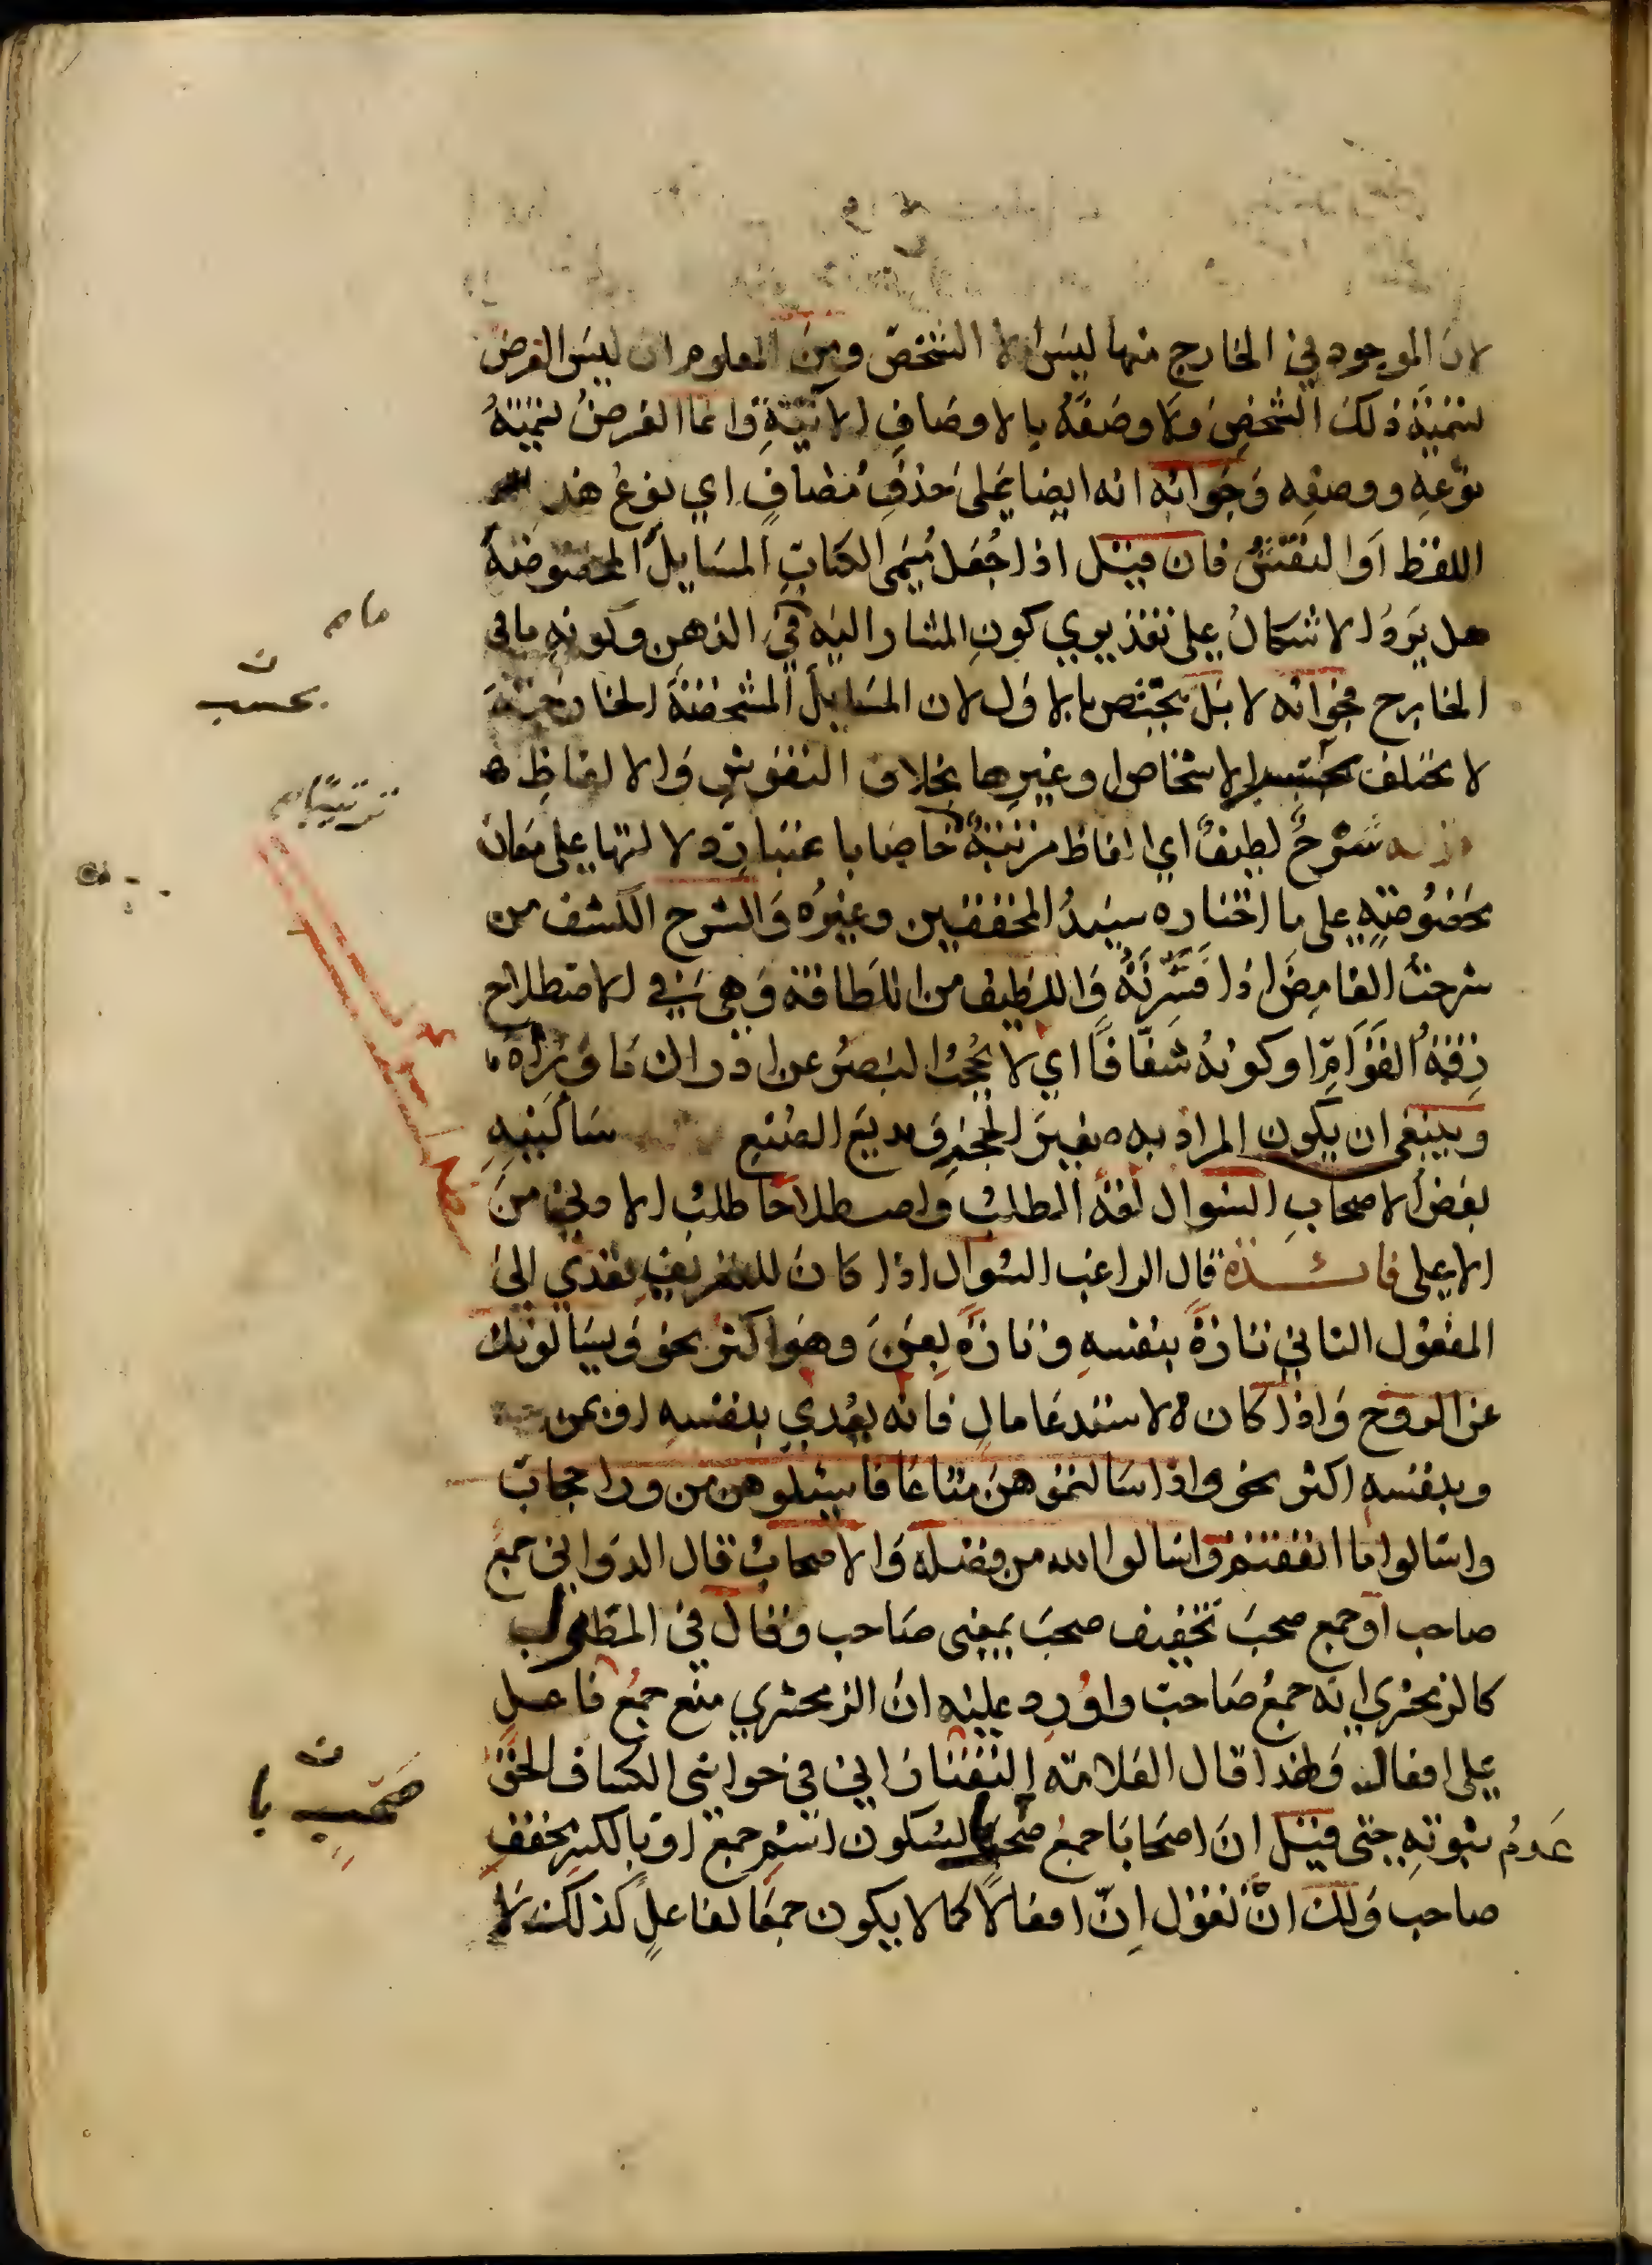 لان الموجود في الخارج منها ليس الا الشخص ومن المعلوم ان ليس الغرض
تسمية ذلك الشخص ولا وصفه بالاوصاف الاتية وانما الغرض تسمية
نوعه ووصفه وجوابه انه ايضا على حذف مضاف اي نوع هذ
اللفظ او النقش فان قيل اذا جعل مسمى الكتاب المسايل المخصوصة
هل يرد الاشكال على تقديري كون المشار اليه في الذهن وكونه مافي
الخارج فجوابه لا بل يختص بالاول لان المسايل المشخصة الخارجية
لا تختلف بحسب الاشخاص وغيرها بخلاف النقوش والالفاظ ه
شرح لطيف اي الفاظ مرتبة خاصا باعتبار دلالتها على معان
مخصوصة على ما اختاره سيد المحققين وغيره والشرح الكشف من
شرحت الغامض اذا فسرته واللطيف من اللطافة وهي في الاصطلاح
رقة القوام او كونه شفافا اي لا يحجب البصر عن ادراك ما وراه
وينبغي ان يكون المراد به صغير الحجم وبديع الصنع سالنيه
بعض الاصحاب السوال لغة الطلب واصطلاحا طلب الادنى من
الاعلى فائدة قال الراغب السوال اذا كان للتعريف تعدي الى
المفعول الثاني تارة بنفسه وتارة بعن وهو اكثر نحو ويسالونك
عن الروح واذا كان لاستدعا مال فانه يعدي بنفسه او بمن
وبنفسه اكثر نحو واذا سالتموهن متاعا فاسئلوهن من ورا حجاب
واسالوا ما انفقتم واسالوا الله من فضله والاصحاب قال الدواني جمع
صاحب او جمع صحب تخفيف صحب بمعنى صاحب وقال في المطول
كالزمخشري انه جمع صاحب واورد عليه ان الزمخشري منع جمع فاعل
على افعال ولهذا قال العلامة التفتازاني في حواشي الكشاف الحق
عدم ثبوته حتى قيل ان اصحابا جمع صحب بالسكون اسم جمع او بالكسر مخفف
صاحب ولك ان تقول ان افعالا كما لا يكون جمعا لفاعل كذلك لا
ن
بحسب
ترتيبا
ن
صحب با